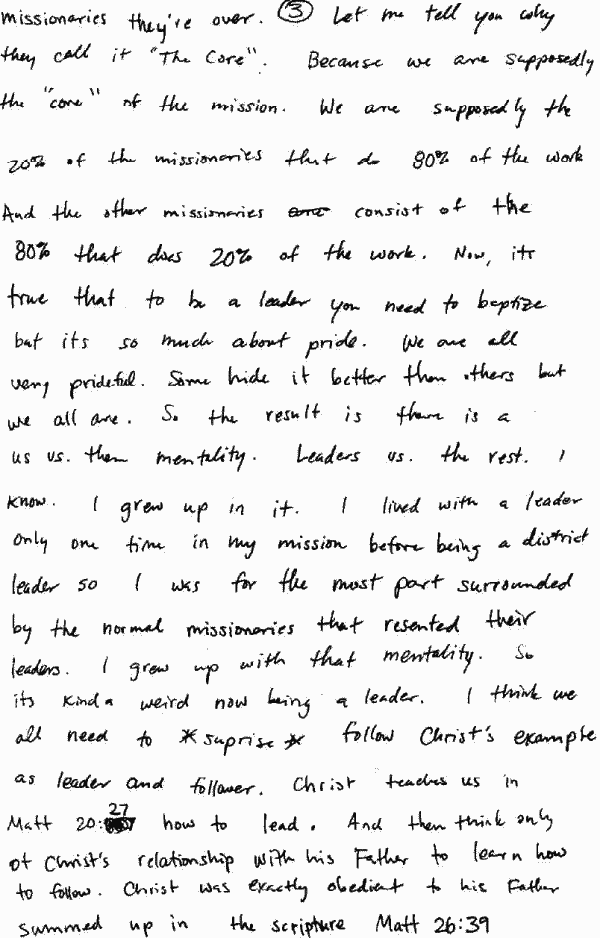 missionaries they're over. ③ Let me tell you why
they call it "The Core". Because we are supposedly
the "core" of the mission. We are supposedly the
20% of the missionaries that do 80% of the work
And the other missionaries are consist of the
80% that does 20% of the work. Now, its
true that to be a leader you need to baptize
but its so much about pride. We are all
very prideful. Some hide it better than others but
we all are. So the result is there is a
us vs. them mentality. Leaders vs. the rest. I
know. I grew up in it. I lived with a leader
only one time in my mission before being a district
leader so I was for the most part surrounded
by the normal missionaries that resented their
leaders. I grew up with that mentality. So
its kinda weird now being a leader. I think we
all need to *suprise* follow Christ's example
as leader and follower. Christ teaches us in
Matt 20:27 how to lead. And then think only
of Christ's relationship with his Father to learn how
to follow. Christ was exactly obedient to his Father
summed up in the scripture Matt 26:39